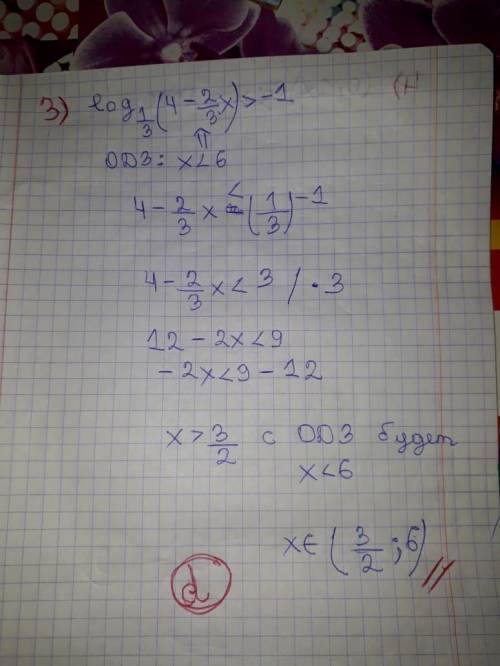 3) log_{1/3}(4 - 2/3 x) > -1
ОДЗ: x < 6
4 - 2/3 x < (1/3)^{-1}
4 - 2/3 x < 3 / · 3
12 - 2x < 9
-2x < 9 - 12
x > 3/2 с ОДЗ будет
x < 6
x ∈ (3/2 ; 6) //
d